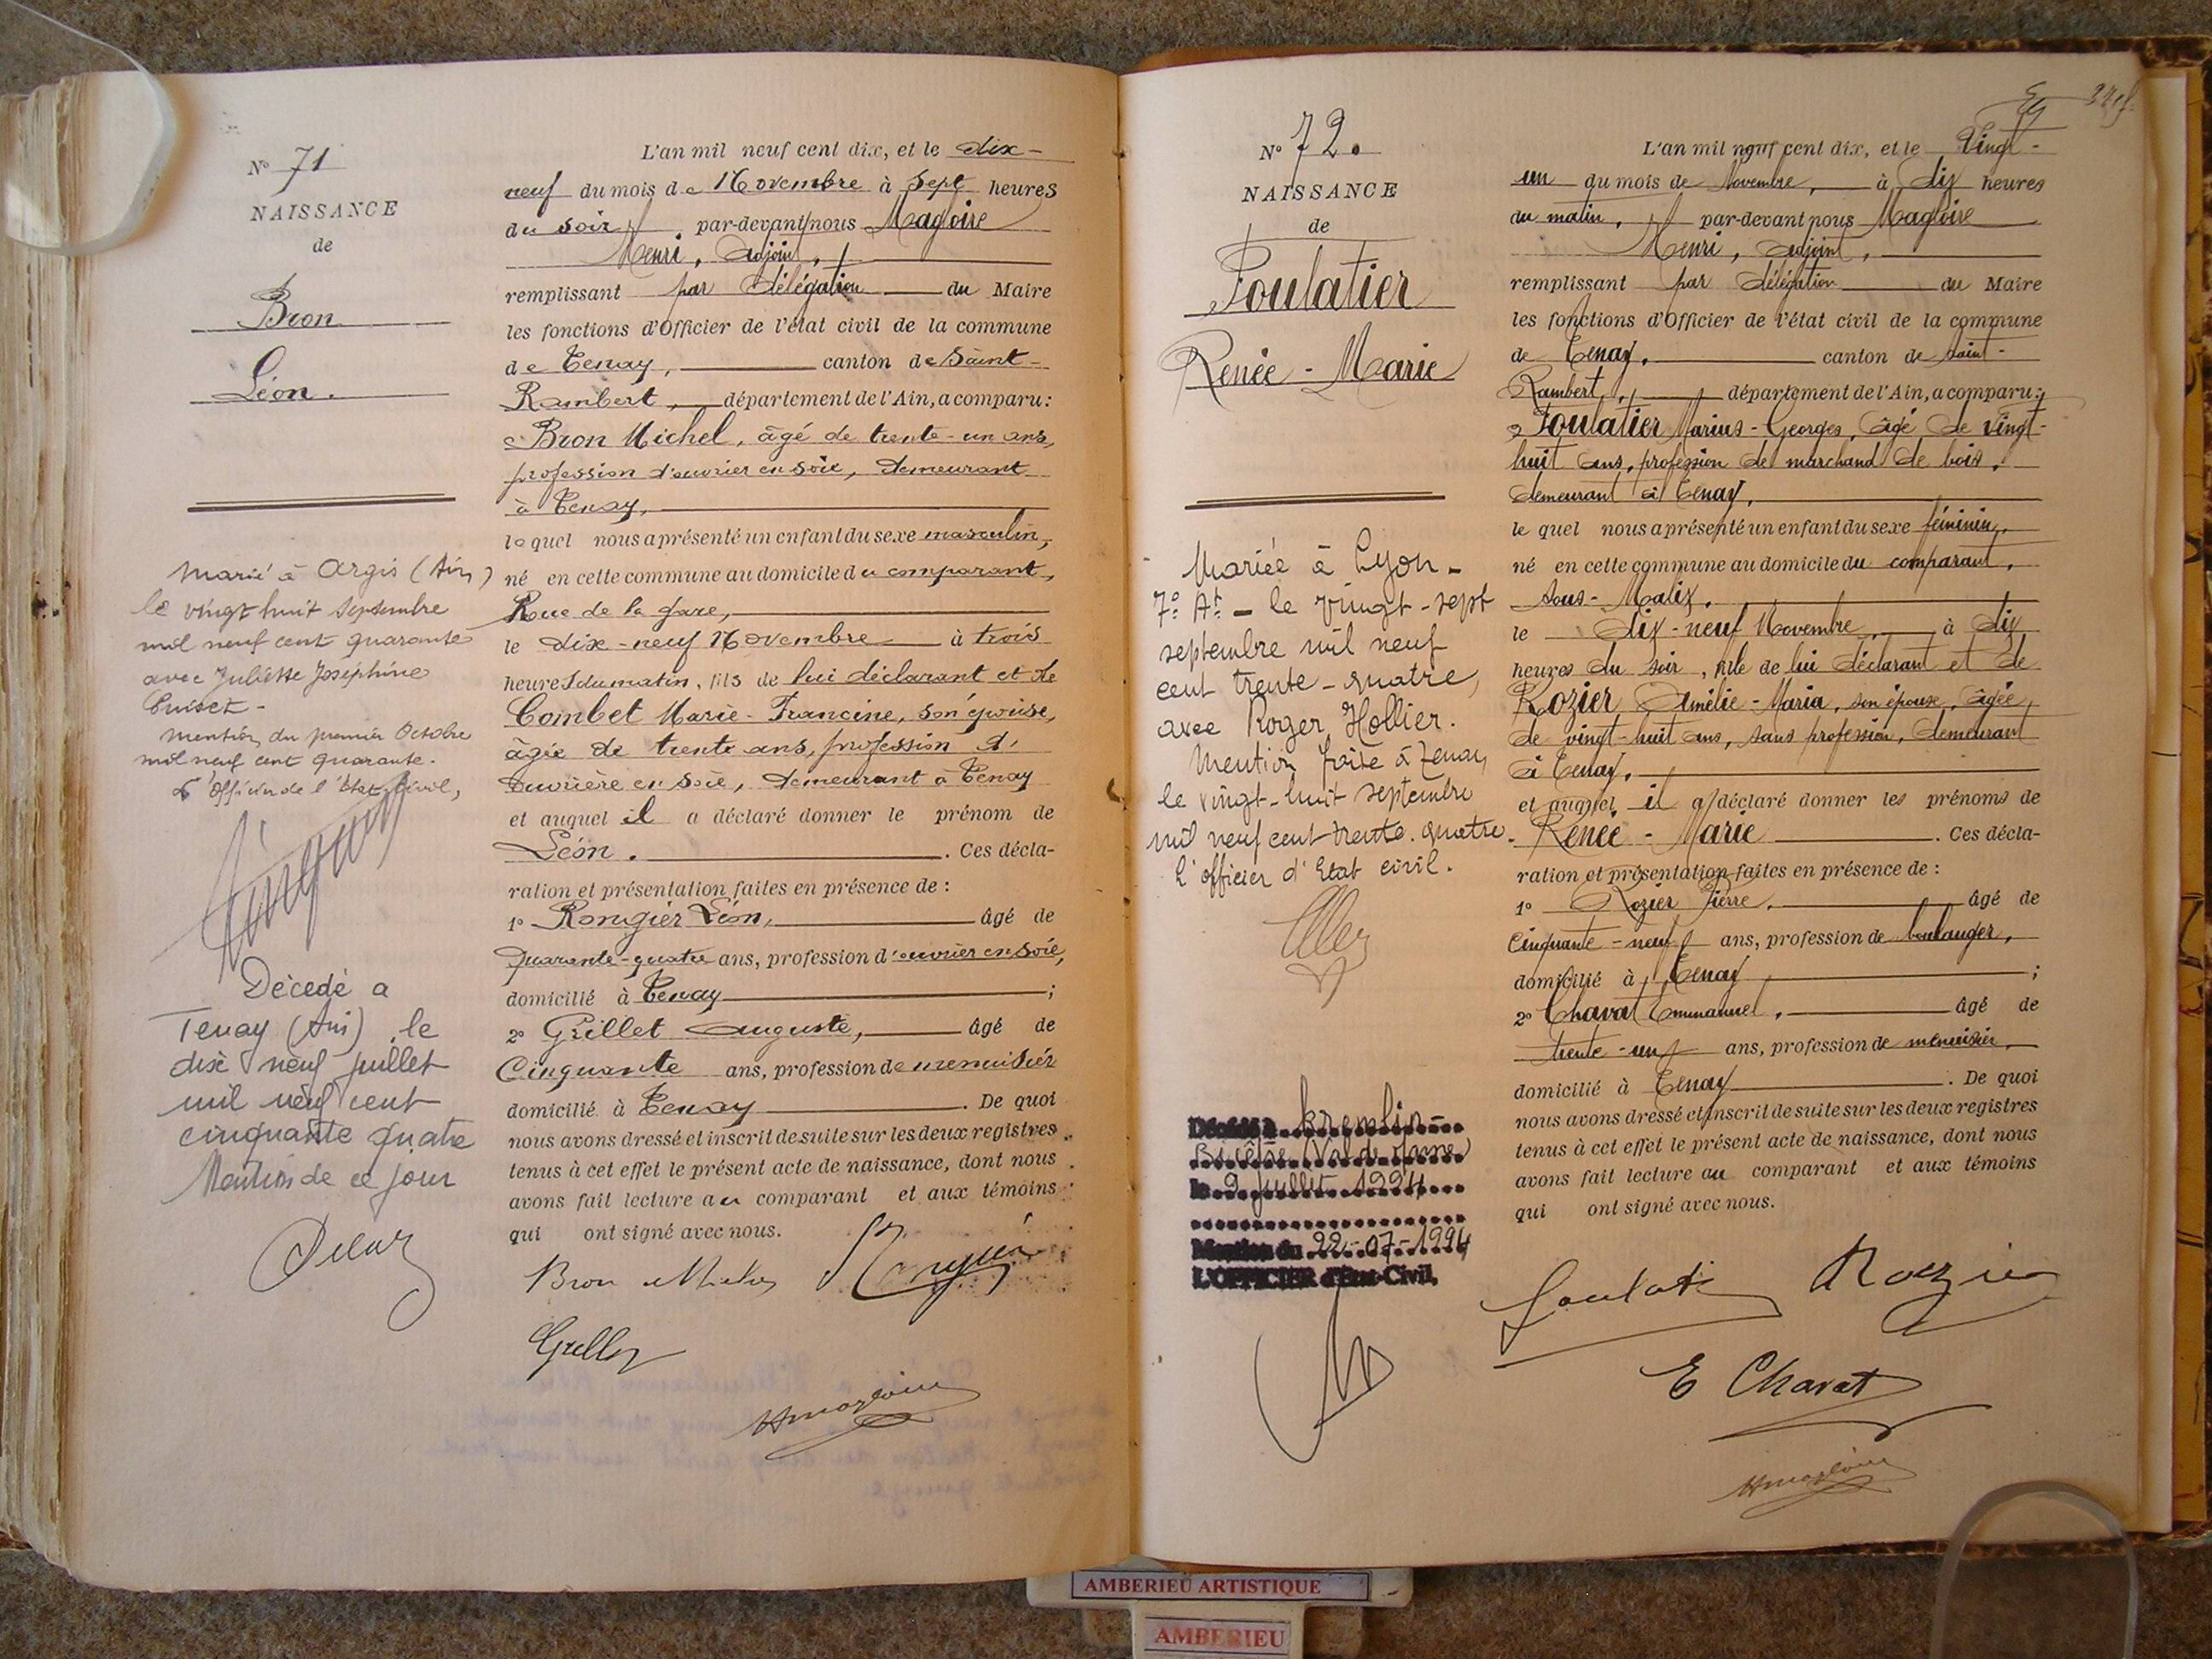 N° 71
NAISSANCE
de
Bron
Léon.
marié à Argis (Ain)
le vingt huit septembre
mil neuf cent quarante
avec Juliette Joséphine
mention du premier Octobre
mil neuf cent quarante.
L'Officier de l'état civil,
Décédé à
Tenay (Ain) le
dix neuf juillet
mil neuf cent
cinquante quatre
Mention de ce jour
L'an mil neuf cent dix, et le dix-
neuf du mois de Novembre à sept heures
du soir, par-devant nous Magloire
Henri, adjoint,
remplissant par délégation du Maire
les fonctions d'Officier de l'état civil de la commune
de Tenay, canton de Saint-
Rambert, département de l'Ain, a comparu:
Bron Michel, âgé de trente-un ans,
profession d'ouvrier en soie, demeurant
à Tenay,
lequel nous a présenté un enfant du sexe masculin,
né en cette commune au domicile du comparant,
Rue de la gare,
le dix-neuf Novembre à trois
heures du matin, fils de lui déclarant et de
Combet Marie-Francine, son épouse,
âgée de trente ans, profession d'
ouvrière en soie, demeurant à Tenay
et auquel il a déclaré donner le prénom de
Léon. Ces décla-
ration et présentation faites en présence de :
1° Rougier Léon, âgé de
Quarante-quatre ans, profession d'ouvrier en soie,
domicilié à Tenay ;
2° Grillet Auguste, âgé de
Cinquante ans, profession de menuisier
domicilié à Tenay. De quoi
nous avons dressé et inscrit de suite sur les deux registres
tenus à cet effet le présent acte de naissance, dont nous
avons fait lecture au comparant et aux témoins
qui ont signé avec nous.
Bron Michel
HMagloire
N° 72.
NAISSANCE
de
Foulatier
Renée-Marie
Mariée à Lyon -
7e At - le vingt-sept
septembre mil neuf
cent trente-quatre,
avec Roger Hollier.
Mention faite à Tenay
le vingt-huit septembre
mil neuf cent trente-quatre.
L'officier d'Etat civil.
Décédée à Kremlin-
Bicêtre (Val de Marne)
le 9 juillet 1994
Mention du 22-07-1994
L'OFFICIER d'Etat-Civil,
L'an mil neuf cent dix, et le Vingt-
un du mois de Novembre, à dix heures
du matin, par-devant nous Magloire
Henri, adjoint,
remplissant par délégation du Maire
les fonctions d'Officier de l'état civil de la commune
de Tenay, canton de Saint-
Rambert, département de l'Ain, a comparu:
Foulatier Marius-Georges, âgé de vingt-
huit ans, profession de marchand de bois,
demeurant à Tenay,
lequel nous a présenté un enfant du sexe féminin,
né en cette commune au domicile du comparant,
sous-Malix,
le dix-neuf Novembre, à dix
heures du soir, fille de lui déclarant et de
Rozier Amélie-Maria, son épouse, âgée
de vingt-huit ans, sans profession, demeurant
à Tenay,
et auquel il a déclaré donner les prénoms de
Renée-Marie. Ces décla-
ration et présentation faites en présence de :
1° Rozier Pierre, âgé de
Cinquante-neuf ans, profession de boulanger,
domicilié à Tenay ;
2° Chavat Emmanuel, âgé de
trente-un ans, profession de menuisier,
domicilié à Tenay. De quoi
nous avons dressé et inscrit de suite sur les deux registres
tenus à cet effet le présent acte de naissance, dont nous
avons fait lecture au comparant et aux témoins
qui ont signé avec nous.
Rozier
E Chavat
HMagloire
AMBERIEU ARTISTIQUE
AMBERIEU